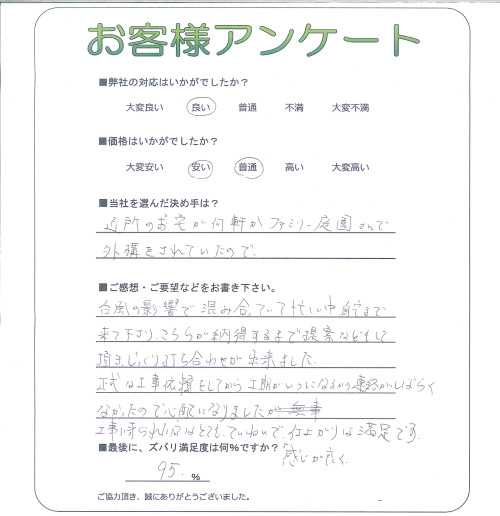 お客様アンケート
■弊社の対応はいかがでしたか？
大変良い 良い 普通 不満 大変不満
■価格はいかがでしたか？
大変安い 安い 普通 高い 大変高い
■当社を選んだ決め手は？
近所のお宅が何軒かファミリー庭園さんで
外構をされていたので。
■ご感想・ご要望などをお書き下さい。
台風の影響で混み合っていて忙しい中、自宅まで
来て下さり、こちらが納得するまで提案などをして
頂き、じっくり打ち合わせが出来ました。
正式な工事依頼をしてから工期がいつになるかの連絡がしばらく
なかったので心配になりましたが無事
工事に来られた方はとてもていねいで、仕上がりは満足です。
感じが良く、
■最後に、ズバリ満足度は何%ですか？
95. %
ご協力頂き、誠にありがとうございました。